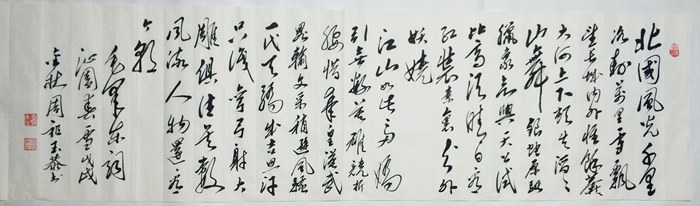 北國風光千里
冰封萬里雪飄
望長城内外惟餘莽
大河上下頓失滔〻
山舞銀蛇原馳
蠟象欲與天公試
比高須晴日看
紅裝素裹分外
妖嬈
江山如此多嬌
引無數英雄競折
腰惜秦皇漢武
畧輸文采稍遜風騷
一代天驕成吉思汗
只識彎弓射大
雕俱往矣數
風流人物還看
今朝
毛澤東詞
沁園春雪戊戌
金秋周祖玉恭書